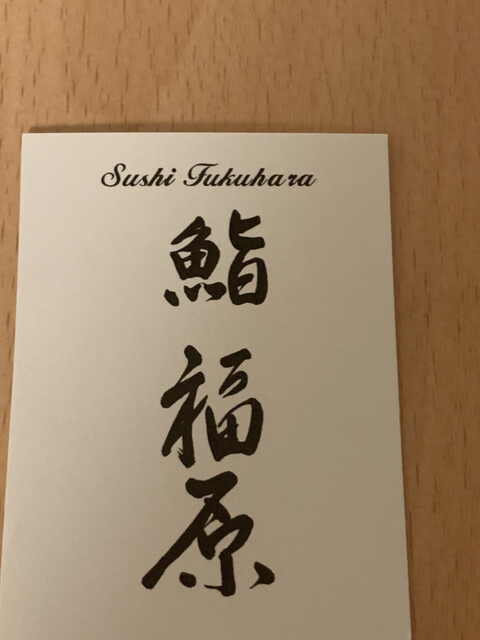 Sushi Fukuhara
鮨
福
原